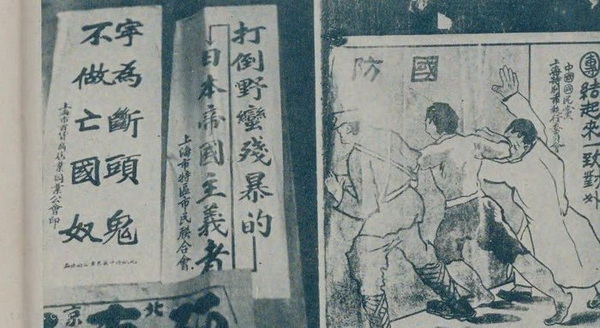 寧為斷頭鬼
不做亡國奴
打倒野蠻殘暴的
「日本帝國主義者
上海市特區市民聯合會
北京
國防
團結起來一致對外
中國國民黨
上海特別市執行委員會